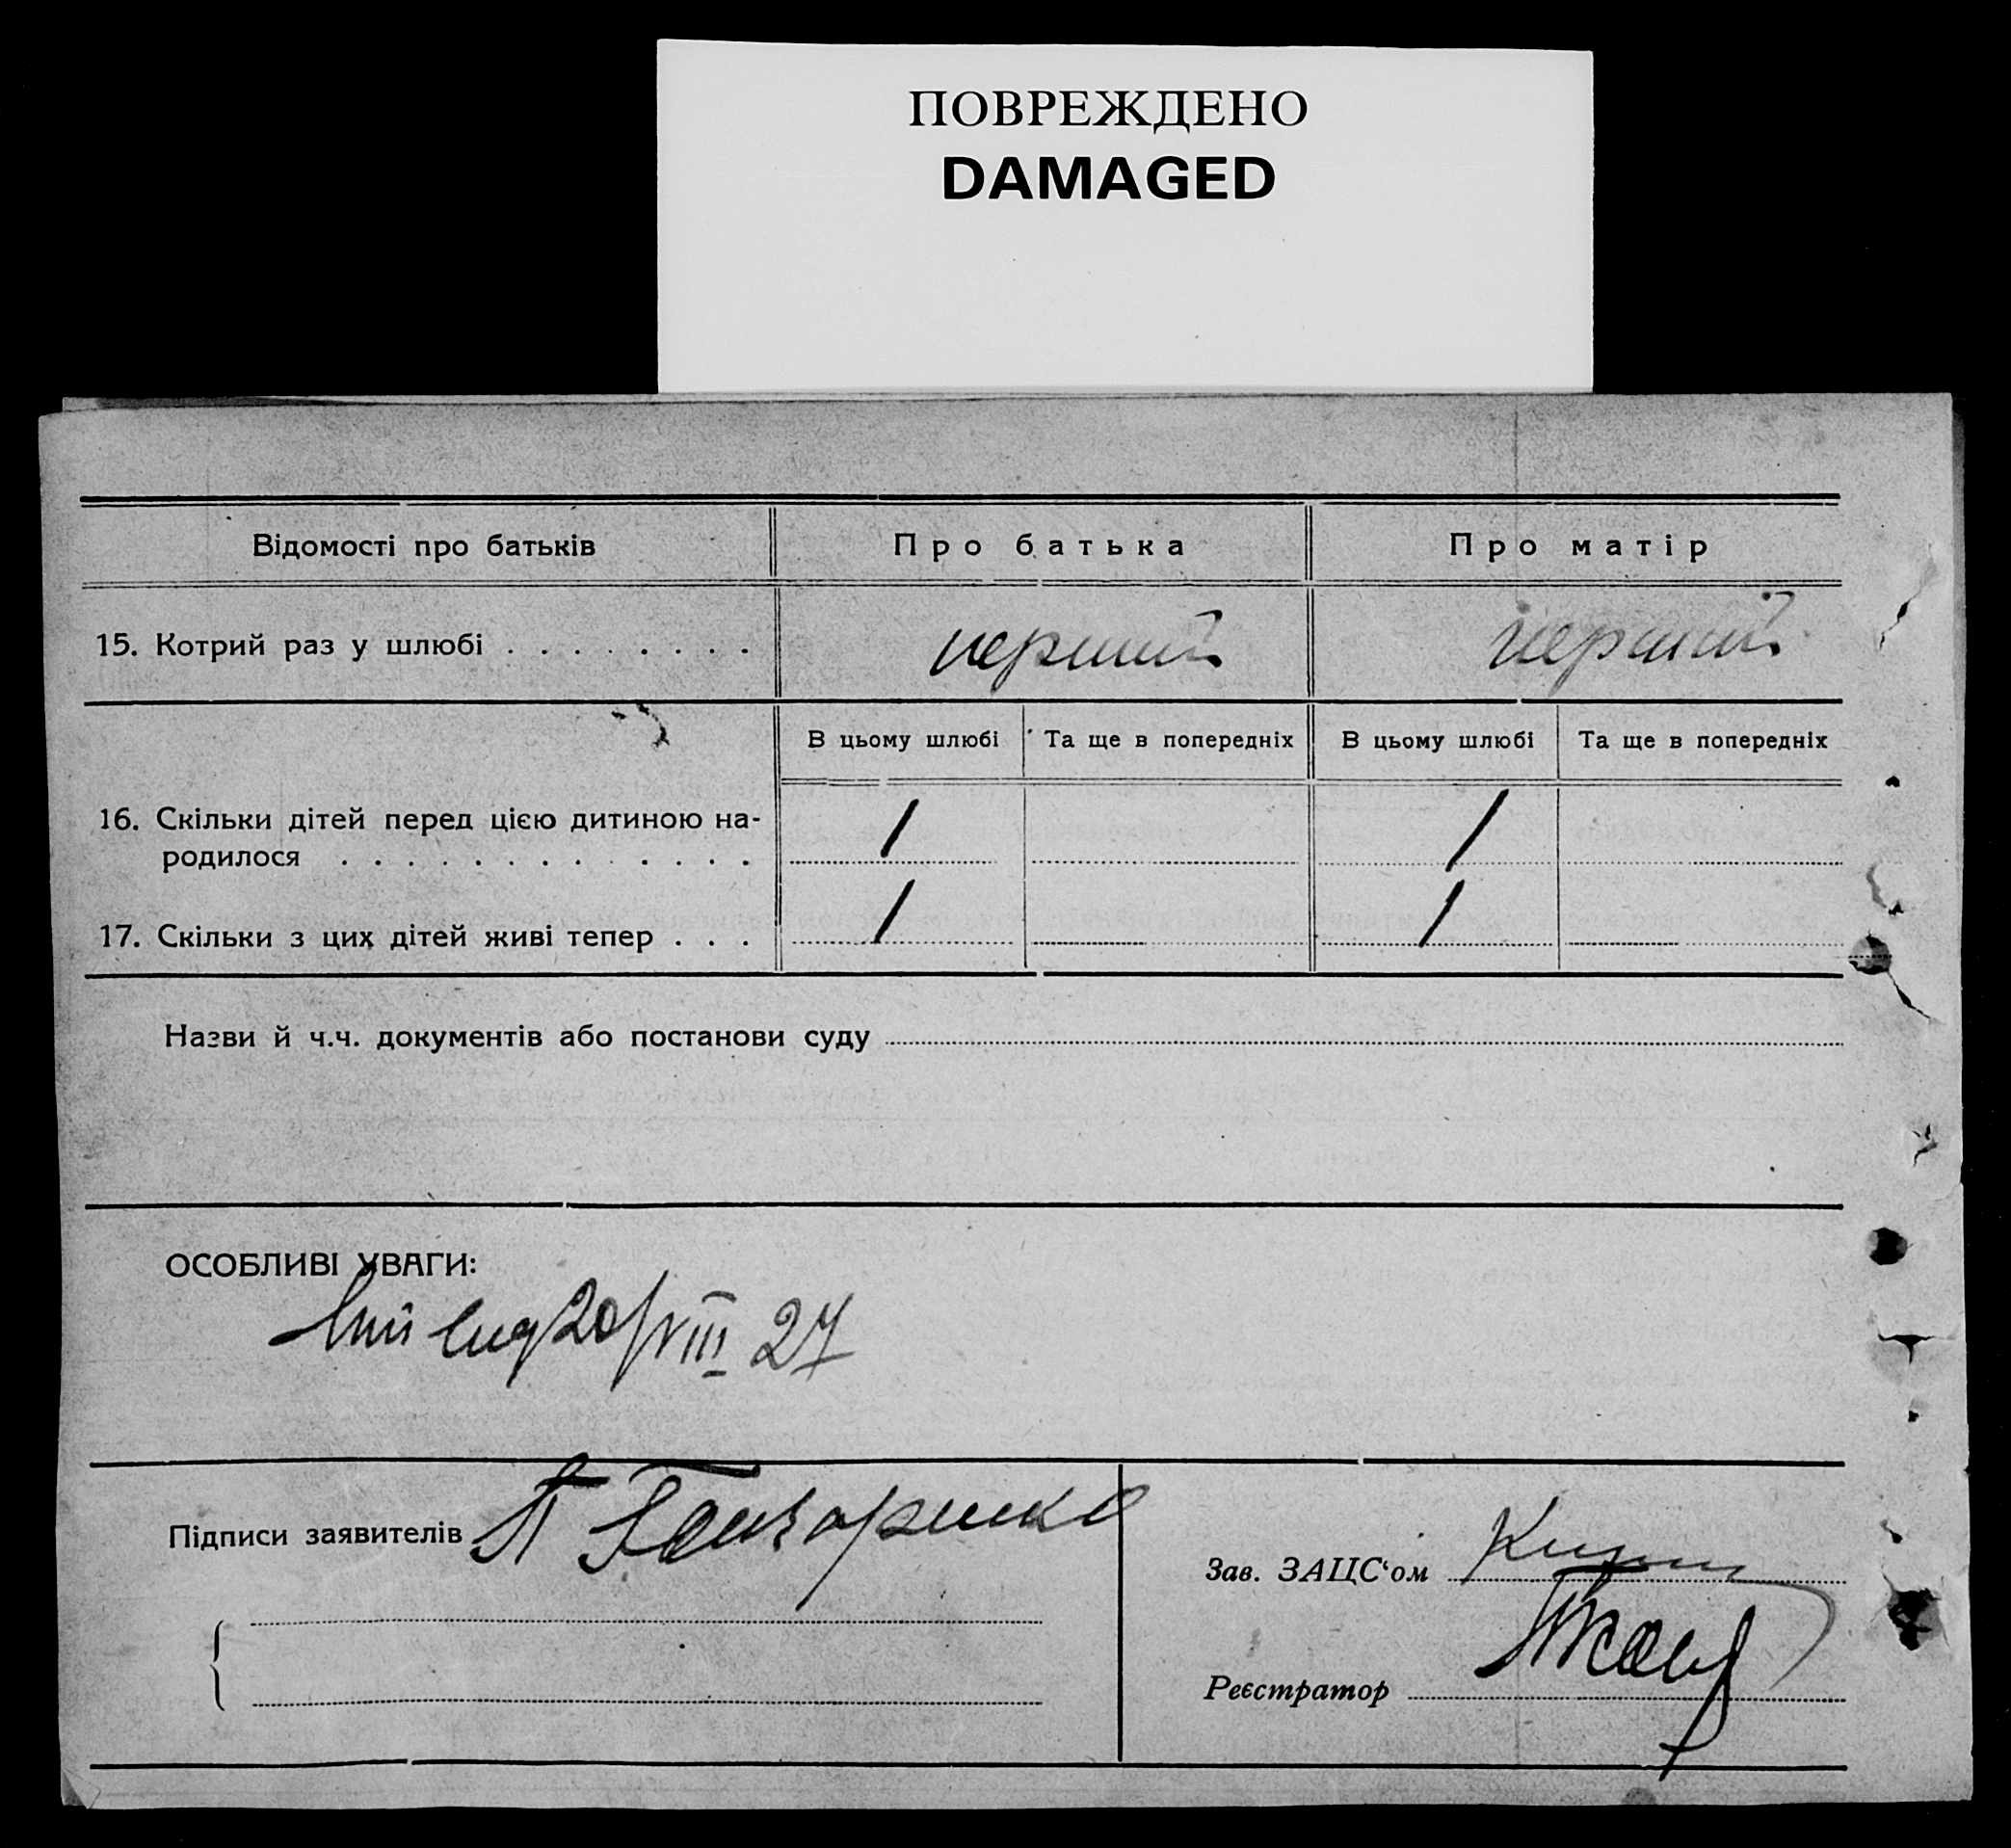 ПОВРЕЖДЕНО
DAMAGED
Відомості про батьків
Про батька
Про матір
15. Котрий раз у шлюбі . . . . . . . .
перший
перший
В цьому шлюбі
Та ще в попередніх
В цьому шлюбі
Та ще в попередніх
16. Скільки дітей перед цією дитиною на-
родилося . . . . . . . . . . . . .
1
1
17. Скільки з цих дітей живі тепер . . .
1
1
Назви й ч.ч. документів або постанови суду
ОСОБЛИВІ УВАГИ:
20/VIII 27
Підписи заявителів П Гончаренко
Зав. ЗАЦС‘ом
Реєстратор